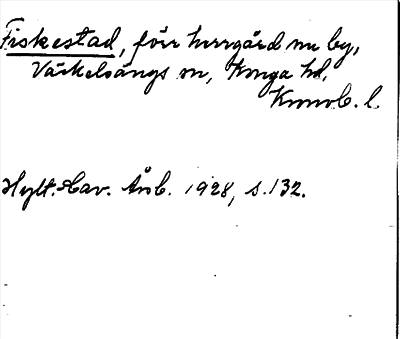 Fiskestad, förr herrgård nu by,
Väckelsångs sn, Konga hd,
Kronob. l.
Hylt.-Cav. Årsb. 1928, s. 132.